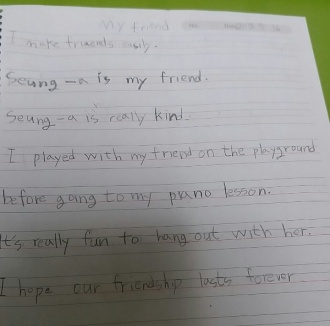 My friend
I make friends easily.
Seung-a is my friend.
Seung-a is really kind.
I played with my friend on the playground
before going to my piano lesson.
It's really fun to hang out with her.
I hope our friendship lasts forever